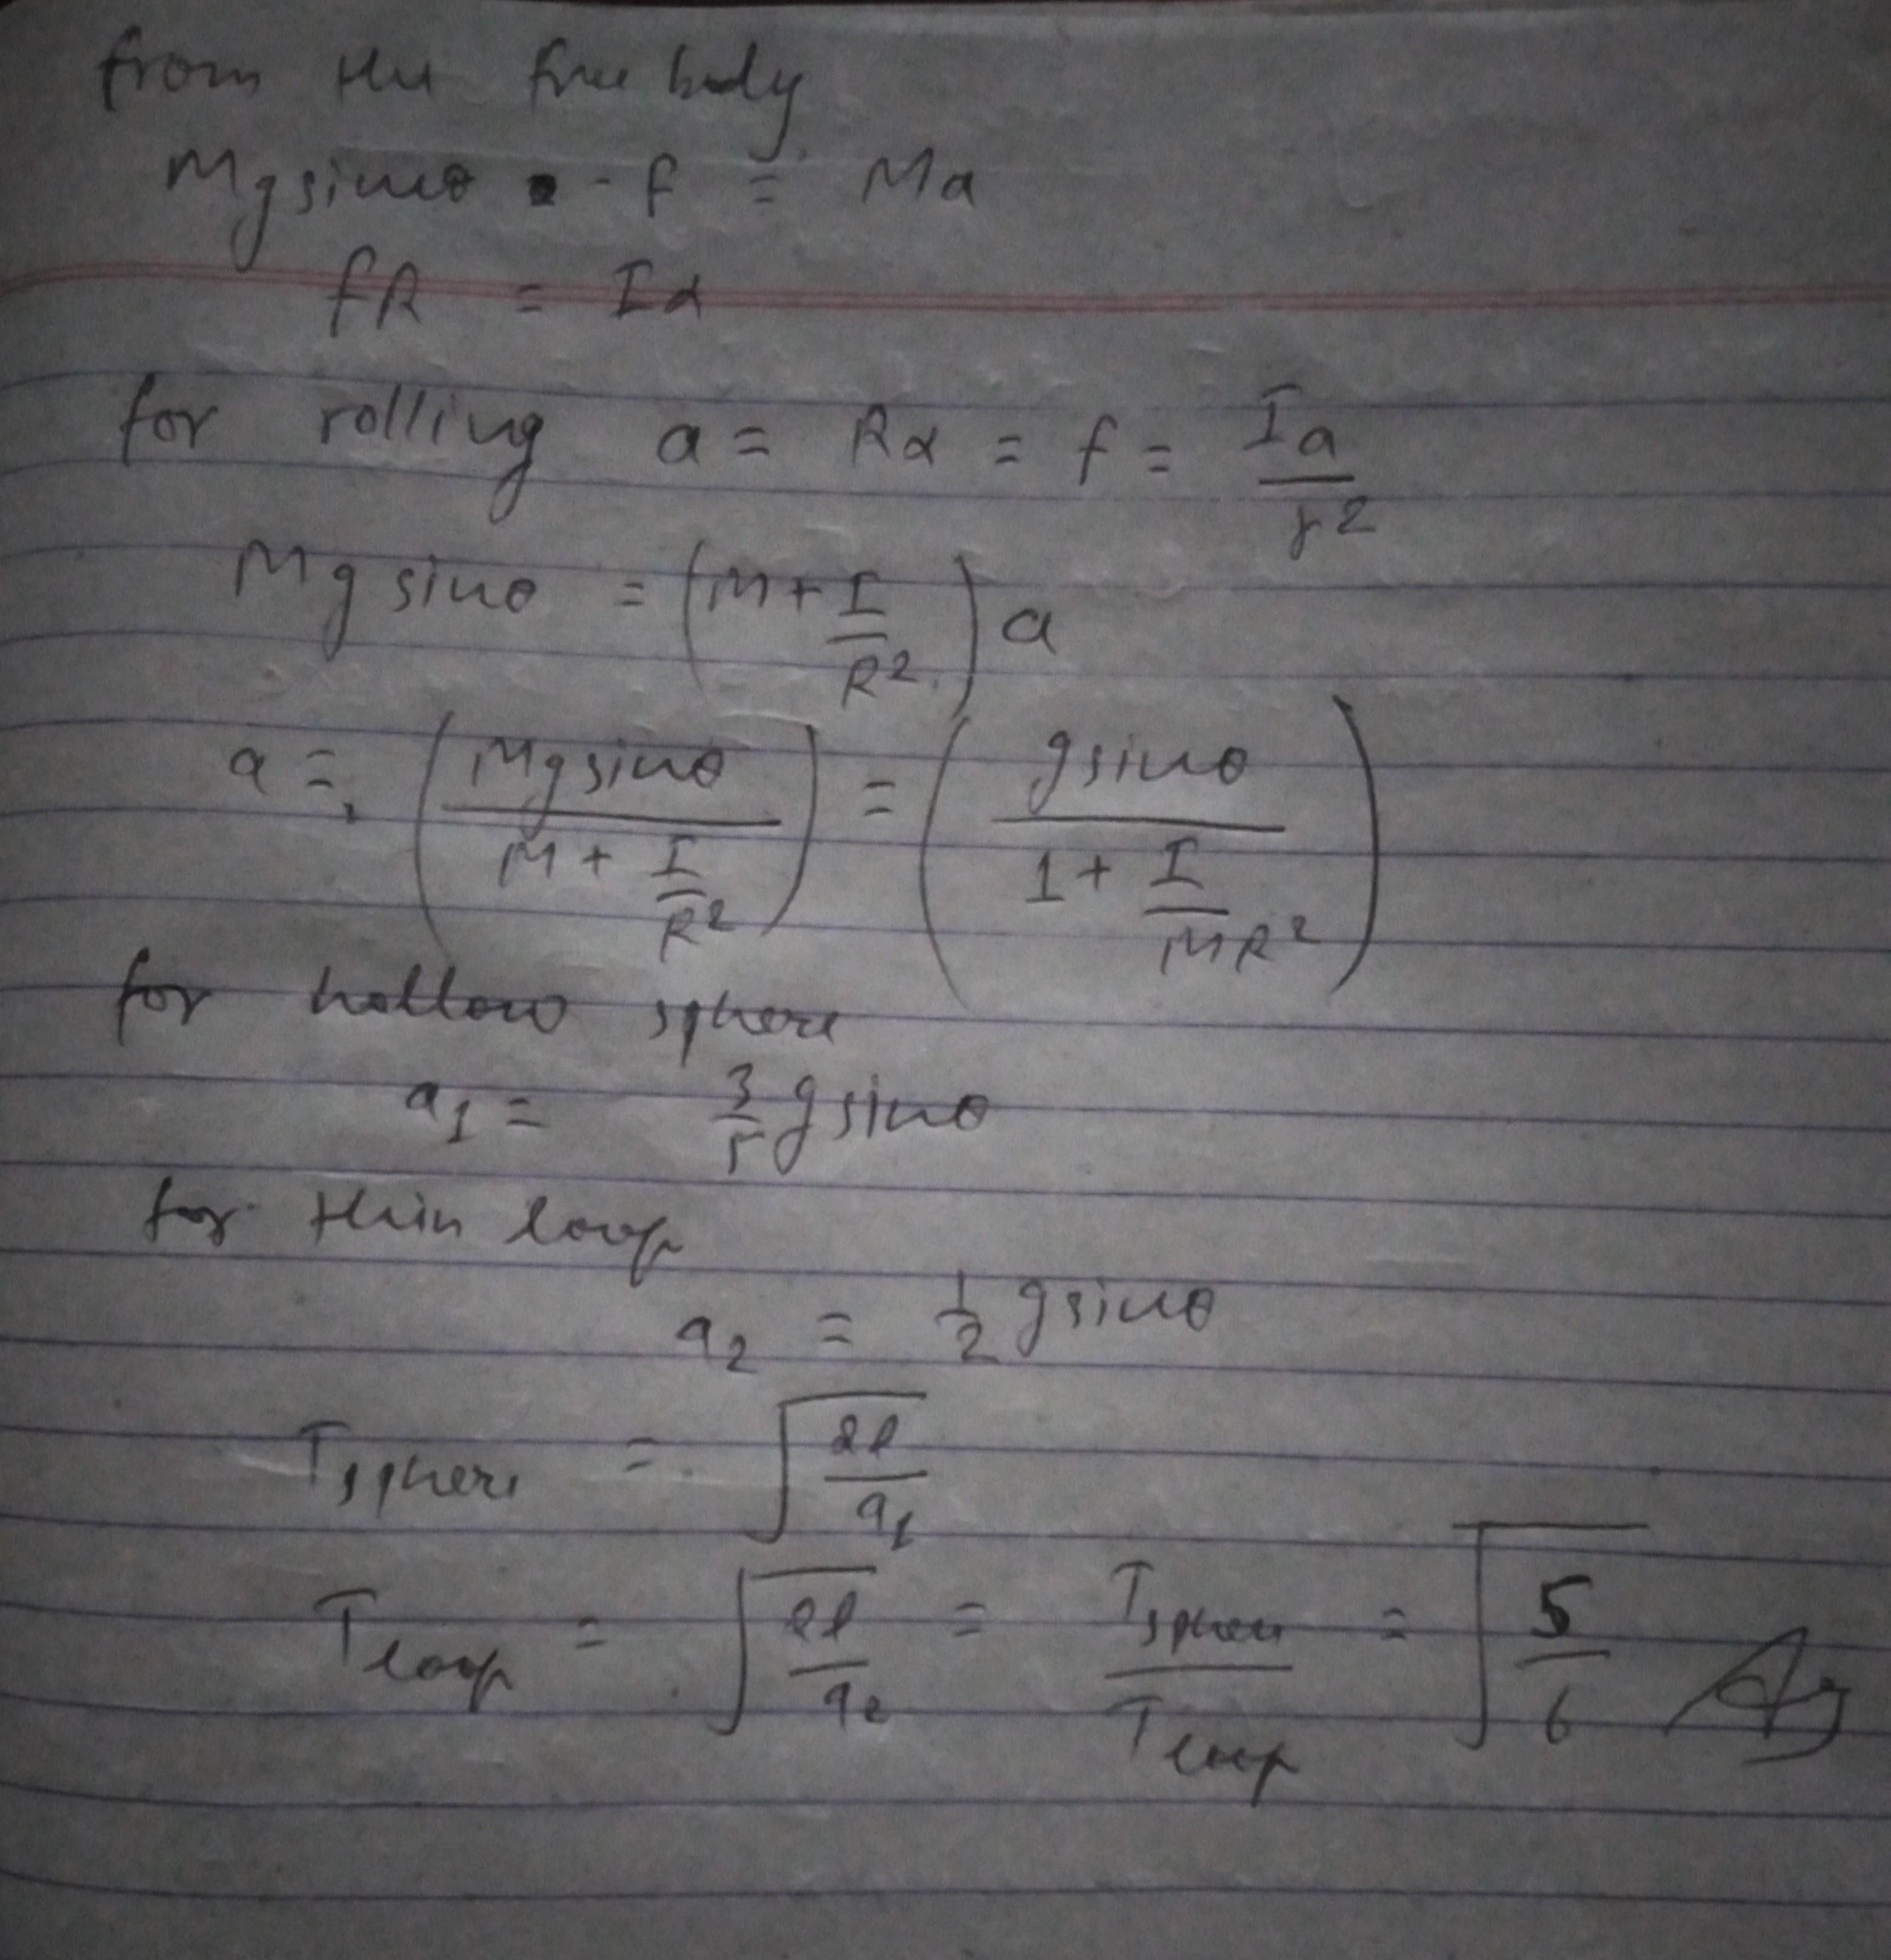 from the free body
Mg sinθ - f = Ma
fR = Iα
for rolling a = Rα = f = Ia/r²
Mg sinθ = (M + I/R²) a
a = (Mg sinθ / (M + I/R²)) = (g sinθ / (1 + I/MR²))
for hollow sphere
a₁ = 3/5 g sinθ
for thin loop
a₂ = 1/2 g sinθ
Tsphere = √(2l/a₁)
Tloop = √(2l/a₂) = Tsphere/Tloop = √(5/6)